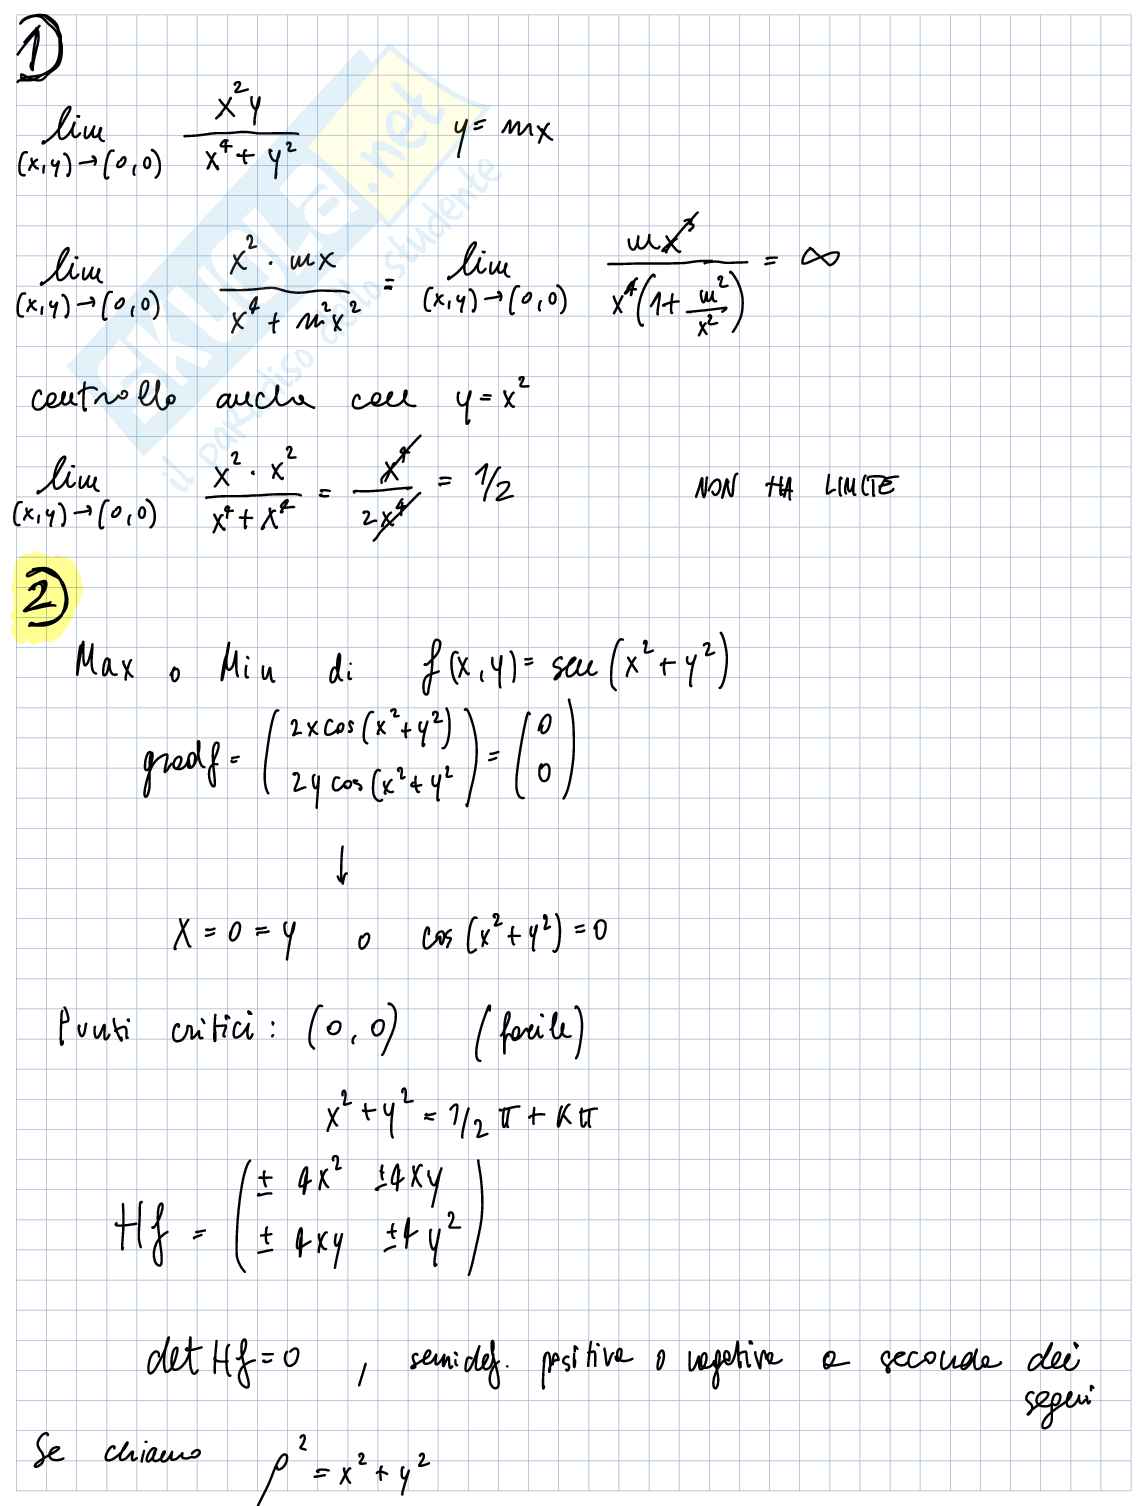 1)
lim (x,y)→(0,0) x²y / (x⁴ + y²) y = mx
lim (x,y)→(0,0) x² · mx / (x⁴ + m²x²) = lim (x,y)→(0,0) mx³ / (x⁴(1 + m²/x²)) = ∞
controllo anche con y = x²
lim (x,y)→(0,0) x² · x² / (x⁴ + x⁴) = x⁴ / 2x⁴ = 1/2 NON HA LIMITE
2)
Max o Min di f(x,y) = sen(x² + y²)
gradf = ( 2x cos(x² + y²) ) = ( 0 )
( 2y cos(x² + y² ) ( 0 )
↓
X = 0 = y o cos(x² + y²) = 0
Punti critici: (0,0) (facile)
x² + y² = 1/2 π + Kπ
Hf = ( ± 4x² ±4xy )
( ± 4xy ±4y² )
det Hf = 0 , semidef. positiva o negativa a seconda dei
segni
Se chiamo ρ² = x² + y²
SKUOLA.net
il paradiso dello studente